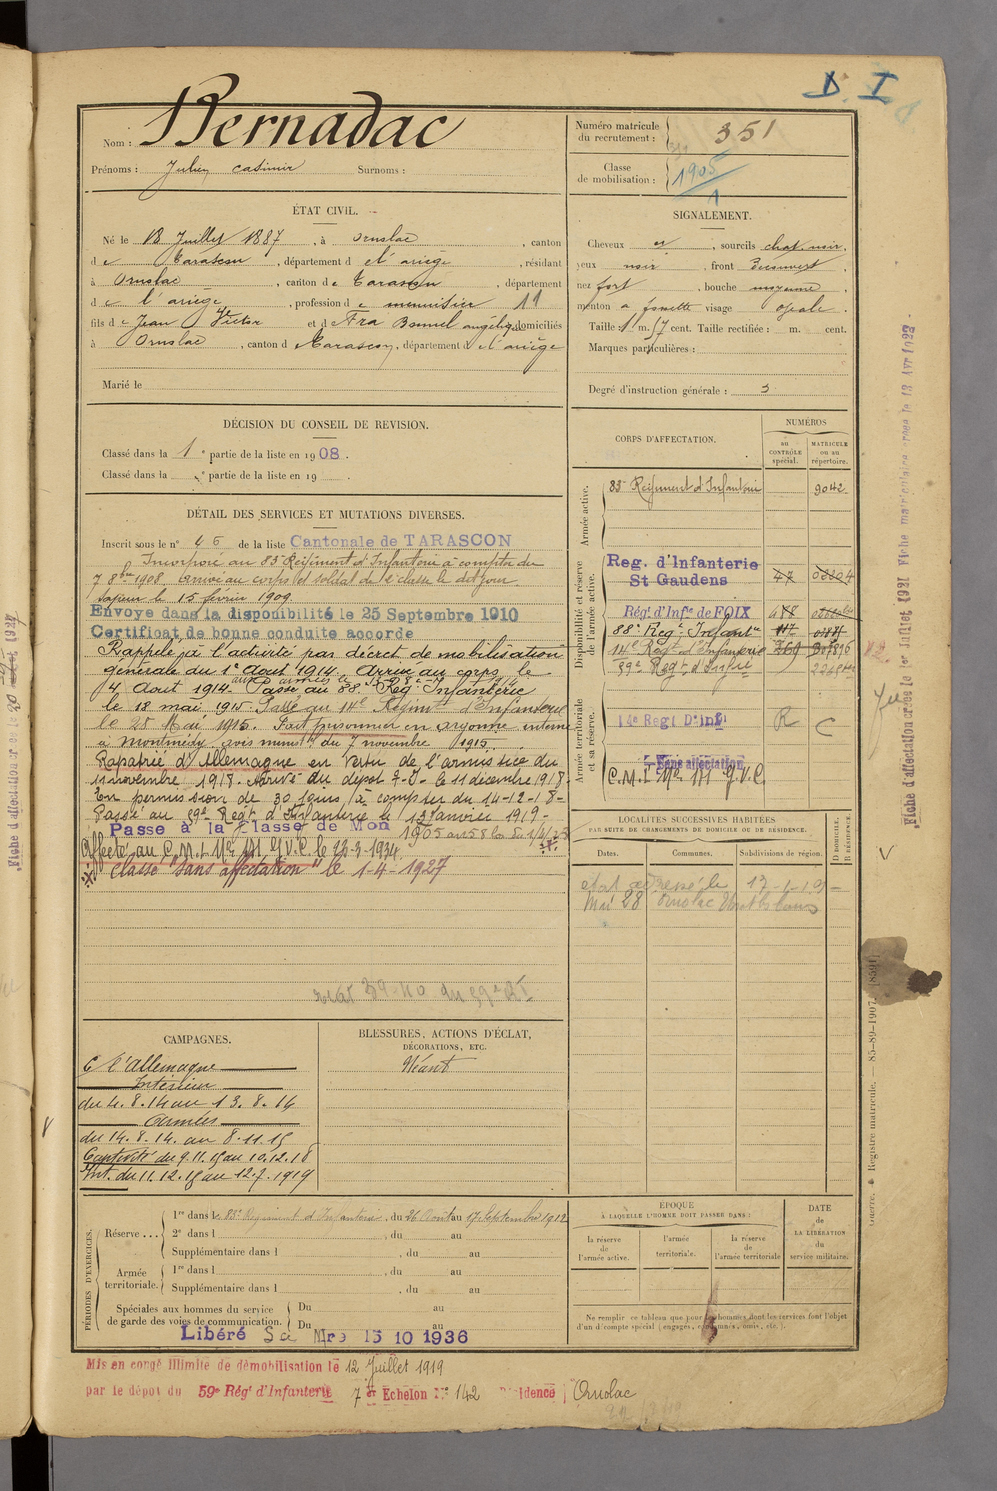 D. I
Nom : Bernadac
Prénoms : Julien Casimir Surnoms :
Numéro matricule du recrutement : 351
Classe de mobilisation : 1905
ÉTAT CIVIL.
Né le 18 Juillet 1887, à Ornolac, canton
de Tarascon, département de l'ariège, résidant
à Ornolac, canton de Tarascon, département
de l'ariège, profession de menuisier 11
fils de Jean Victor et d domiciliés
à Ornolac, canton de Tarascon, département de l'ariège
Marié le
SIGNALEMENT.
Cheveux , sourcils chat. noir,
yeux noir, front Découvert,
nez fort, bouche moyenne,
menton a fossette visage ovale.
Taille 1 m. 57 cent. Taille rectifiée : m. cent.
Marques particulières :
Degré d'instruction générale : 3
DÉCISION DU CONSEIL DE REVISION.
Classé dans la 1e partie de la liste en 1908.
Classé dans la e partie de la liste en 19 .
DÉTAIL DES SERVICES ET MUTATIONS DIVERSES.
Inscrit sous le n° 46 de la liste Cantonale de TARASCON
Incorporé au 83e Régiment d'Infanterie à compter du
7 8bre 1908. Arrivé au corps et soldat de 2e classe le dit jour
Sapeur le 15 février 1909
Envoyé dans la disponibilité le 25 Septembre 1910
Certificat de bonne conduite accordé
Rappelé à l'activité par décret de mobilisation
générale du 1er Aout 1914. Arrivé au corps le
4 Aout 1914. Passé au 88e Reg. Infanterie
le 18 mai 1915. Passé au 14e Régimt d'Infanterie
le 28 Mai 1915. Fait prisonnier en argonne interné
à Montmédy avis minist. du 7 novembre 1915.
Rapatrié d'Allemagne en vertu de l'armistice du
11 novembre 1918. Arrivé du dépot le 11 décembre 1918.
En permission de 30 jours à compter du 14-12-18-
Passé au 59e Régt d'Infanterie le 13 janvier 1919-
Passé à la Classe de Mon 1905
Affecté au C.M.I. No 171 G.V.C. le 23-3-1934
Classé "Sans affectation" le 1-4-1927
CORPS D'AFFECTATION.
NUMÉROS
au CONTRÔLE spécial.
MATRICULE ou au répertoire.
Armée active.
83e Régiment d'Infanterie 9042
Disponibilité et réserve de l'armée active.
Reg. d'Infanterie
St Gaudens 47
Rég. d'Infie de FOIX
88e Reg. Infante
14e Régt d'Infanterie
59e Regt d'Infrie
Armée territoriale et sa réserve.
14e Regt D'infie R C
Sans affectation
C.M.I. No 171 G.V.C.
LOCALITÉS SUCCESSIVES HABITÉES
PAR SUITE DE CHANGEMENTS DE DOMICILE OU DE RÉSIDENCE.
Dates. Communes. Subdivisions de région. D DOMICILE. R RÉSIDENCE.
Mai 28 Ornolac
CAMPAGNES.
C l'Allemagne
Intérieur
du 4.8.14 au 13.8.14
Armées
du 14.8.14. au 8.11.15
Captivité du 9.11.15 au 10.12.18
Int. du 11.12.18 au 12.7.1919
BLESSURES, ACTIONS D'ÉCLAT,
DÉCORATIONS, ETC.
Néant
PÉRIODES D'EXERCICES.
Réserve ...
1re dans le 83e Régiment d'Infanterie, du 26 Aout au 17 Septembre 1912
2e dans l , du au
Supplémentaire dans l , du au
Armée territoriale.
1re dans l , du au
Supplémentaire dans l , du au
Spéciales aux hommes du service de garde des voies de communication.
Du au
Du au
Libéré Sce Mre 15 10 1936
EPOQUE
À LAQUELLE L'HOMME DOIT PASSER DANS :
la réserve de l'armée active.
l'armée territoriale.
la réserve de l'armée territoriale
DATE de LA LIBÉRATION du service militaire.
Ne remplir ce tableau que pour les hommes dont les services font l'objet
d'un décompte spécial (engagés, condamnés, omis, etc.).
Mis en congé illimité de démobilisation le 12 Juillet 1919
par le dépot du 59e Régt d'Infanterie 7e Echelon No 142 Résidence Ornolac
Guerre. Registre matricule. — 85-89-1907.